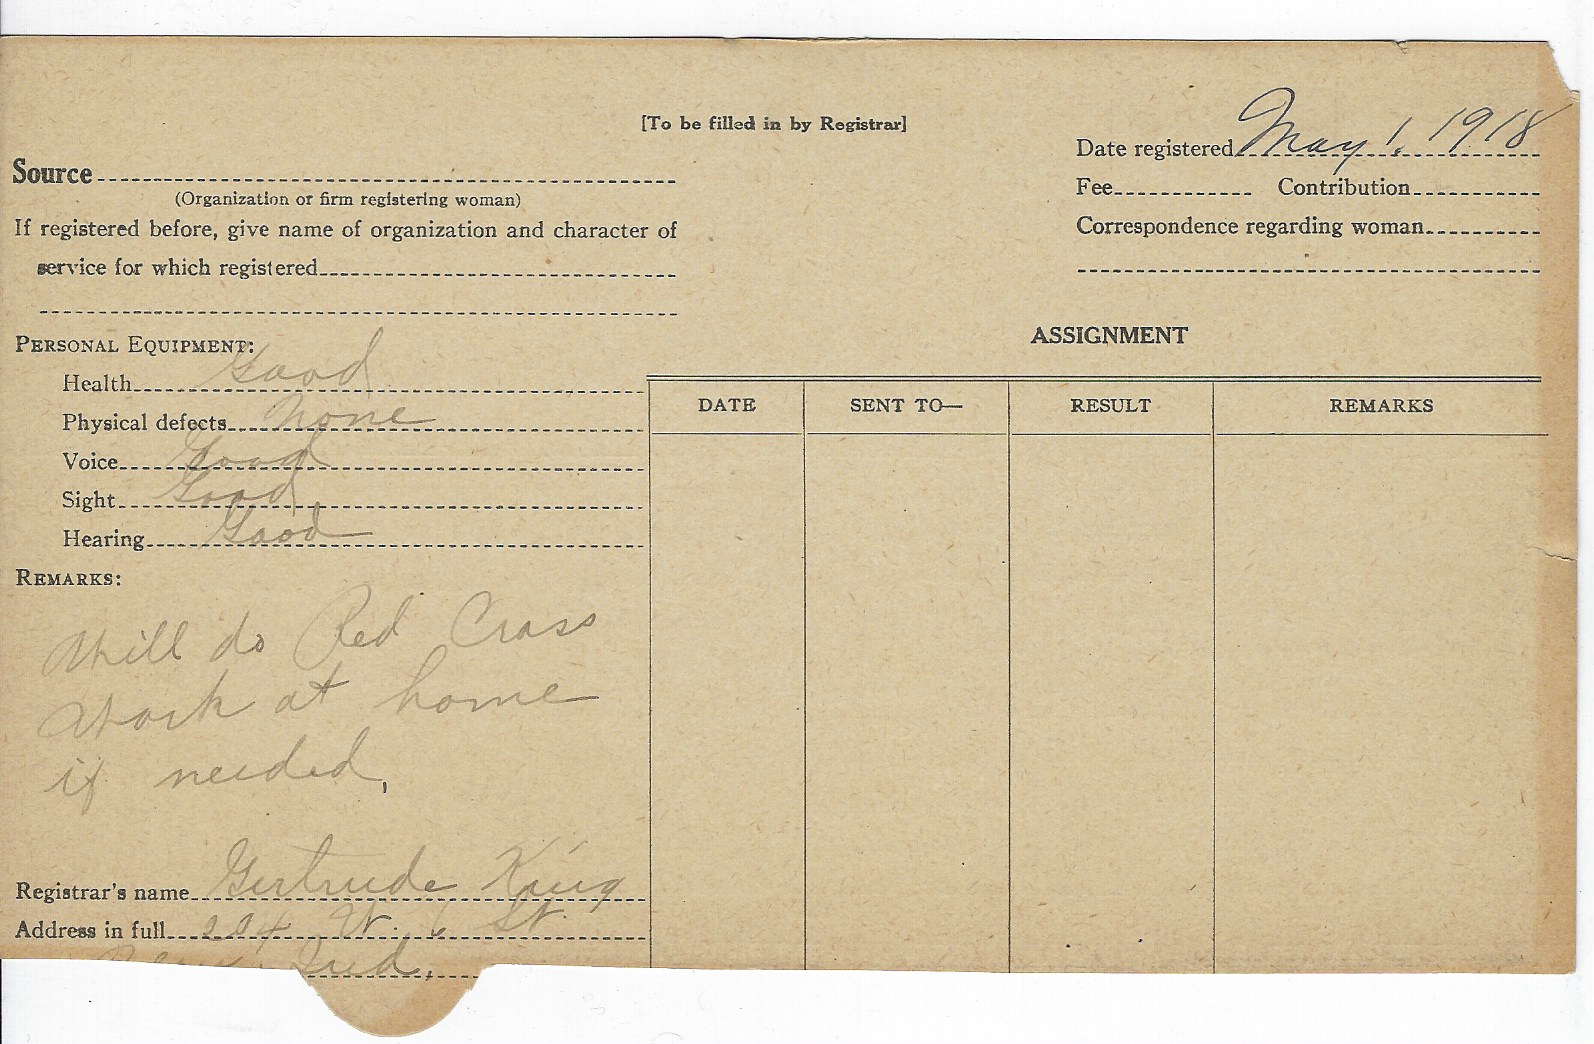 [To be filled in by Registrar]
Date registered May 1, 1918
Source
(Organization or firm registering woman)
Fee Contribution
If registered before, give name of organization and character of
Correspondence regarding woman
service for which registered
ASSIGNMENT
PERSONAL EQUIPMENT:
Health Good
Physical defects None
Voice Good
Sight Good
Hearing Good
DATE SENT TO— RESULT REMARKS
REMARKS:
Will do Red Cross
work at home
if needed.
Registrar's name Gertrude King
Address in full W. 6 St.
Ind.